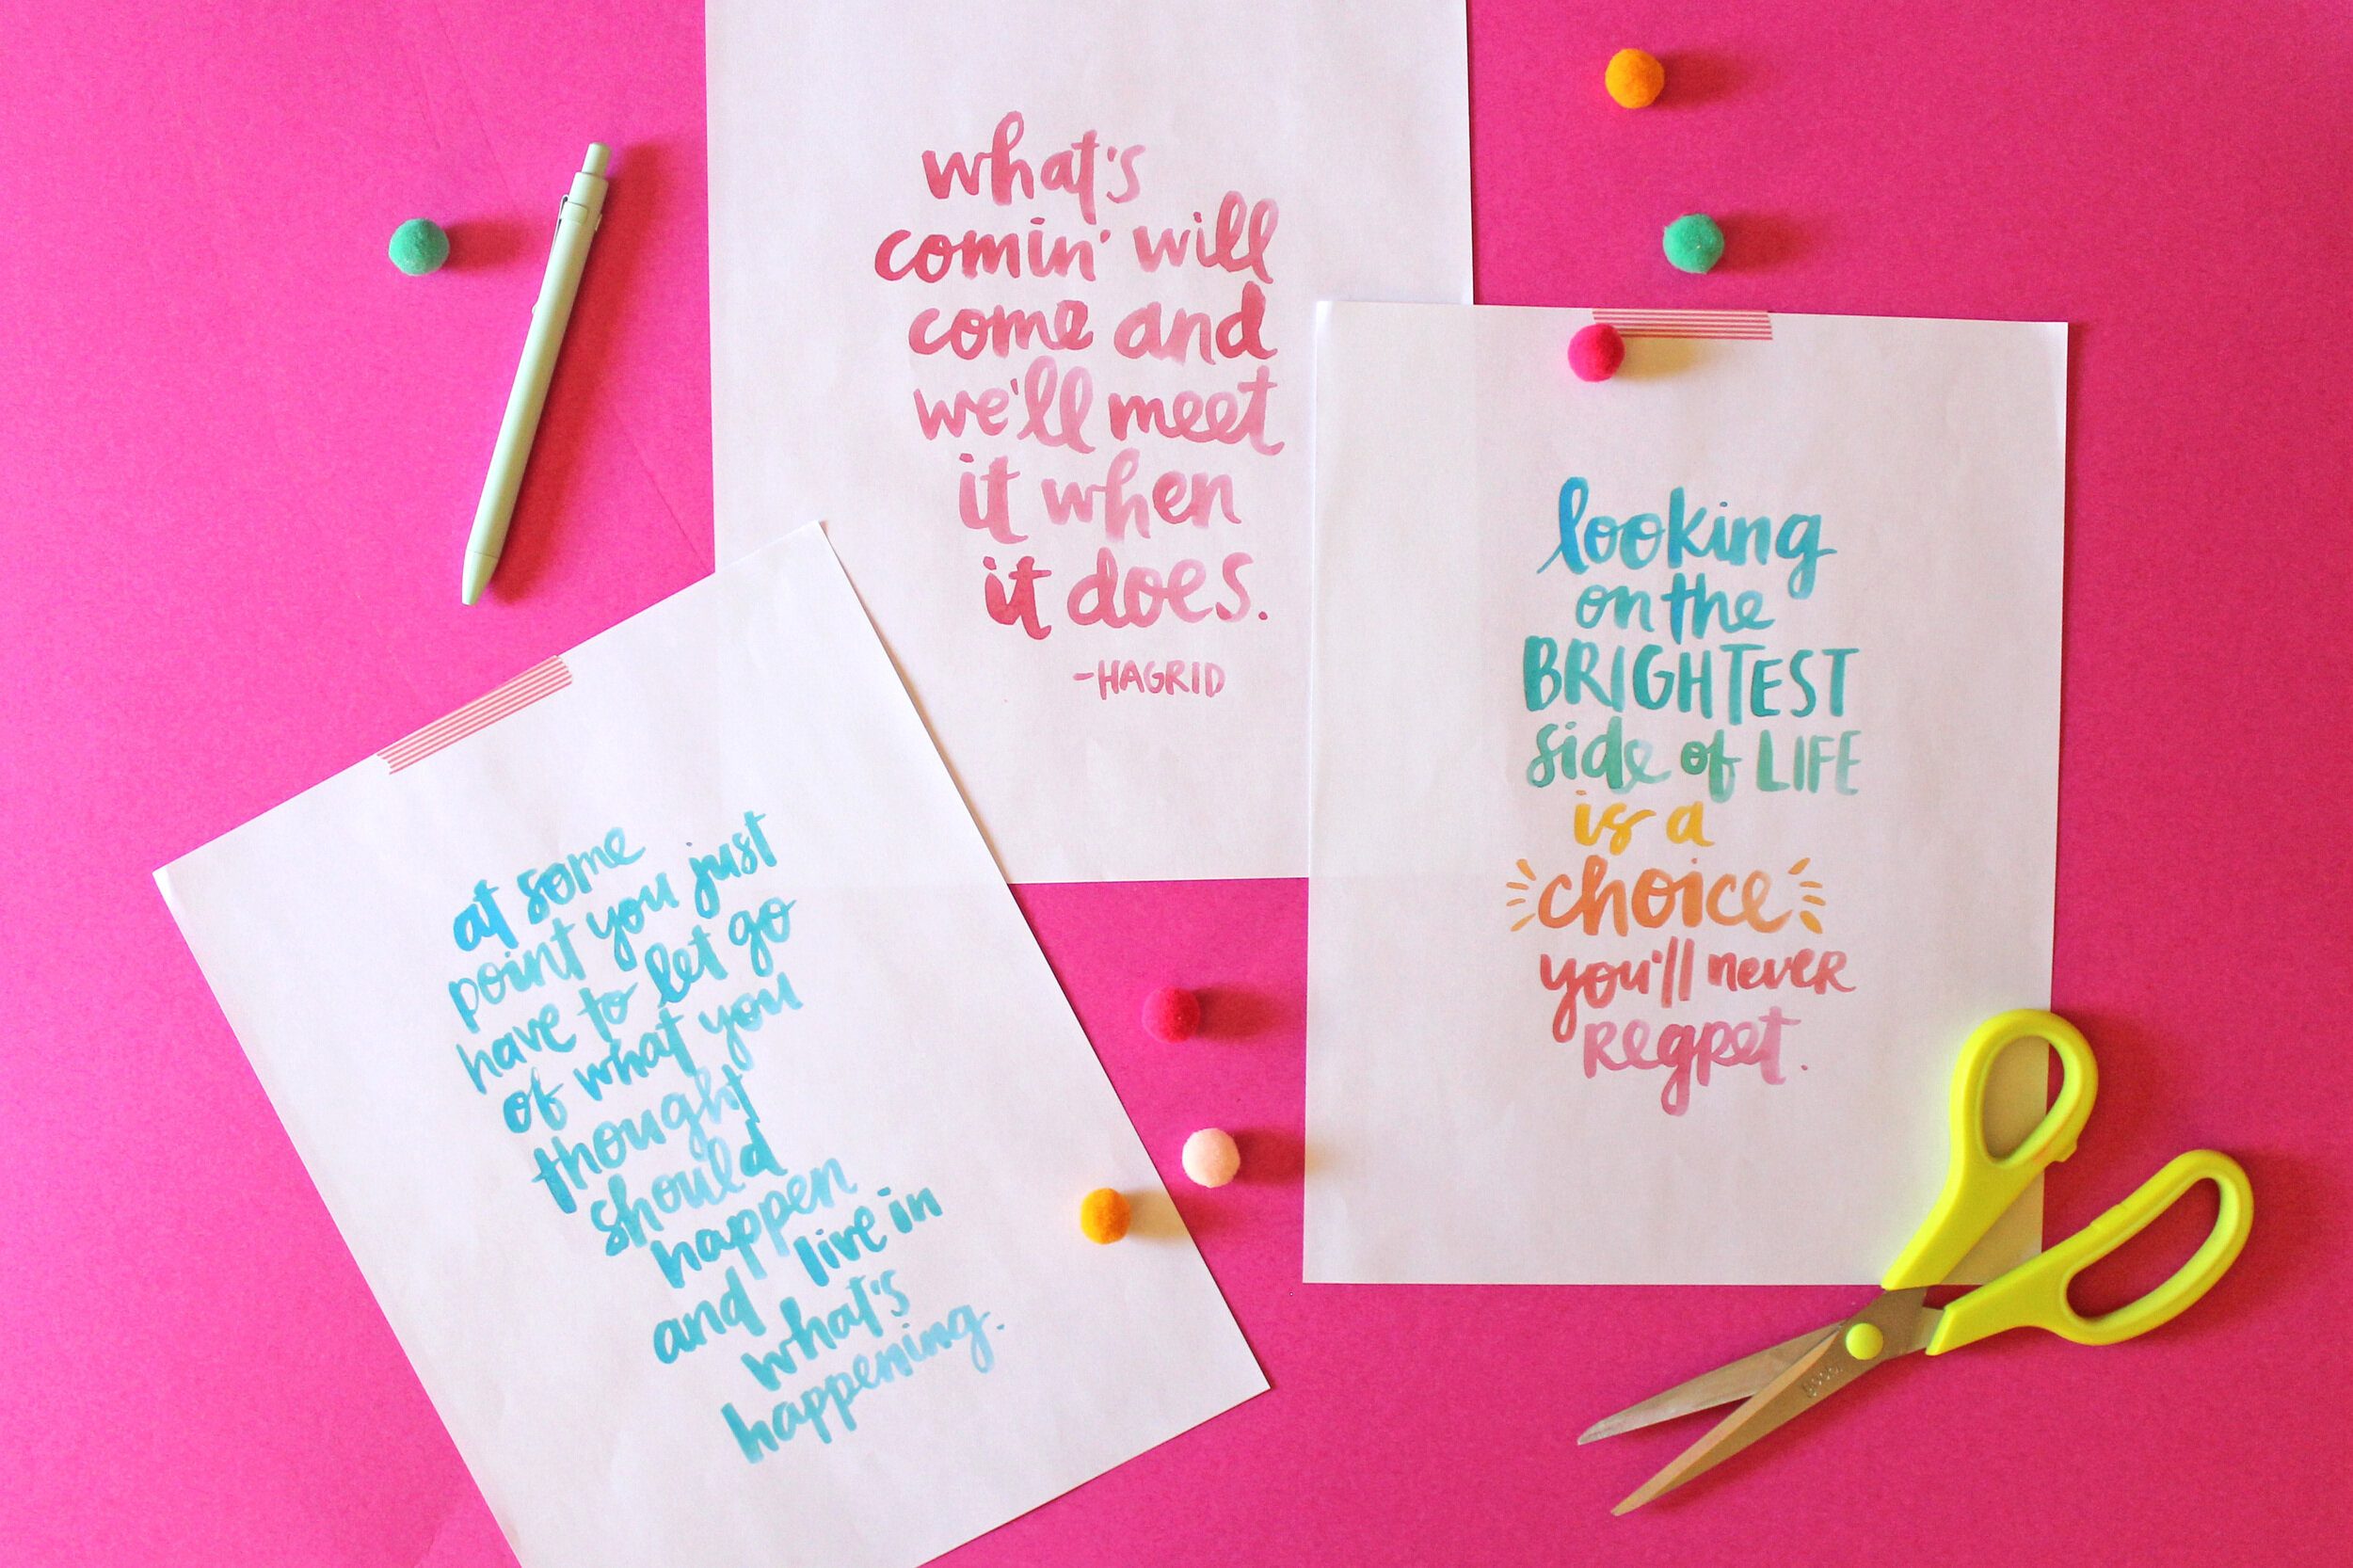 what's
comin' will
come and
we'll meet
it when
it does.
-HAGRID
looking
on the
BRIGHTEST
side of LIFE
is a
choice
you'll never
regret.
at some
point you just
have to let go
of what you
thought
should
happen
and live in
what's
happening.